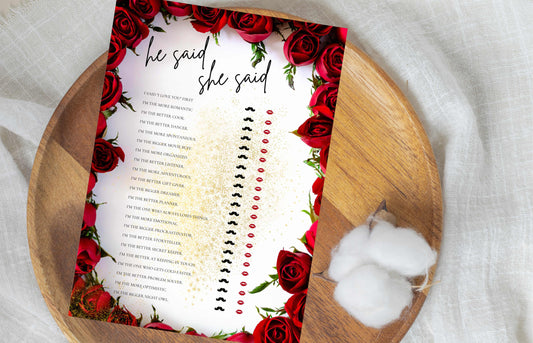 he said
she said
I SAID 'I LOVE YOU' FIRST.
I'M THE MORE ROMANTIC.
I'M THE BETTER COOK.
I'M THE BETTER DANCER.
I'M THE MORE SPONTANEOUS.
I'M THE BIGGER MOVIE BUFF.
I'M THE MORE ORGANIZED.
I'M THE BETTER LISTENER.
I'M THE MORE ADVENTUROUS.
I'M THE BETTER GIFT GIVER.
I'M THE BIGGER DREAMER.
I'M THE BETTER PLANNER.
I'M THE ONE WHO ALWAYS LOSES THINGS.
I'M THE MORE EMOTIONAL.
I'M THE BIGGER PROCRASTINATOR.
I'M THE BETTER STORYTELLER.
I'M THE BETTER SECRET KEEPER.
I'M THE BETTER AT KEEPING IN TOUCH.
I'M THE ONE WHO GETS COLD EASIER.
I'M THE BETTER PROBLEM SOLVER.
I'M THE MORE OPTIMISTIC.
I'M THE BIGGER NIGHT OWL.